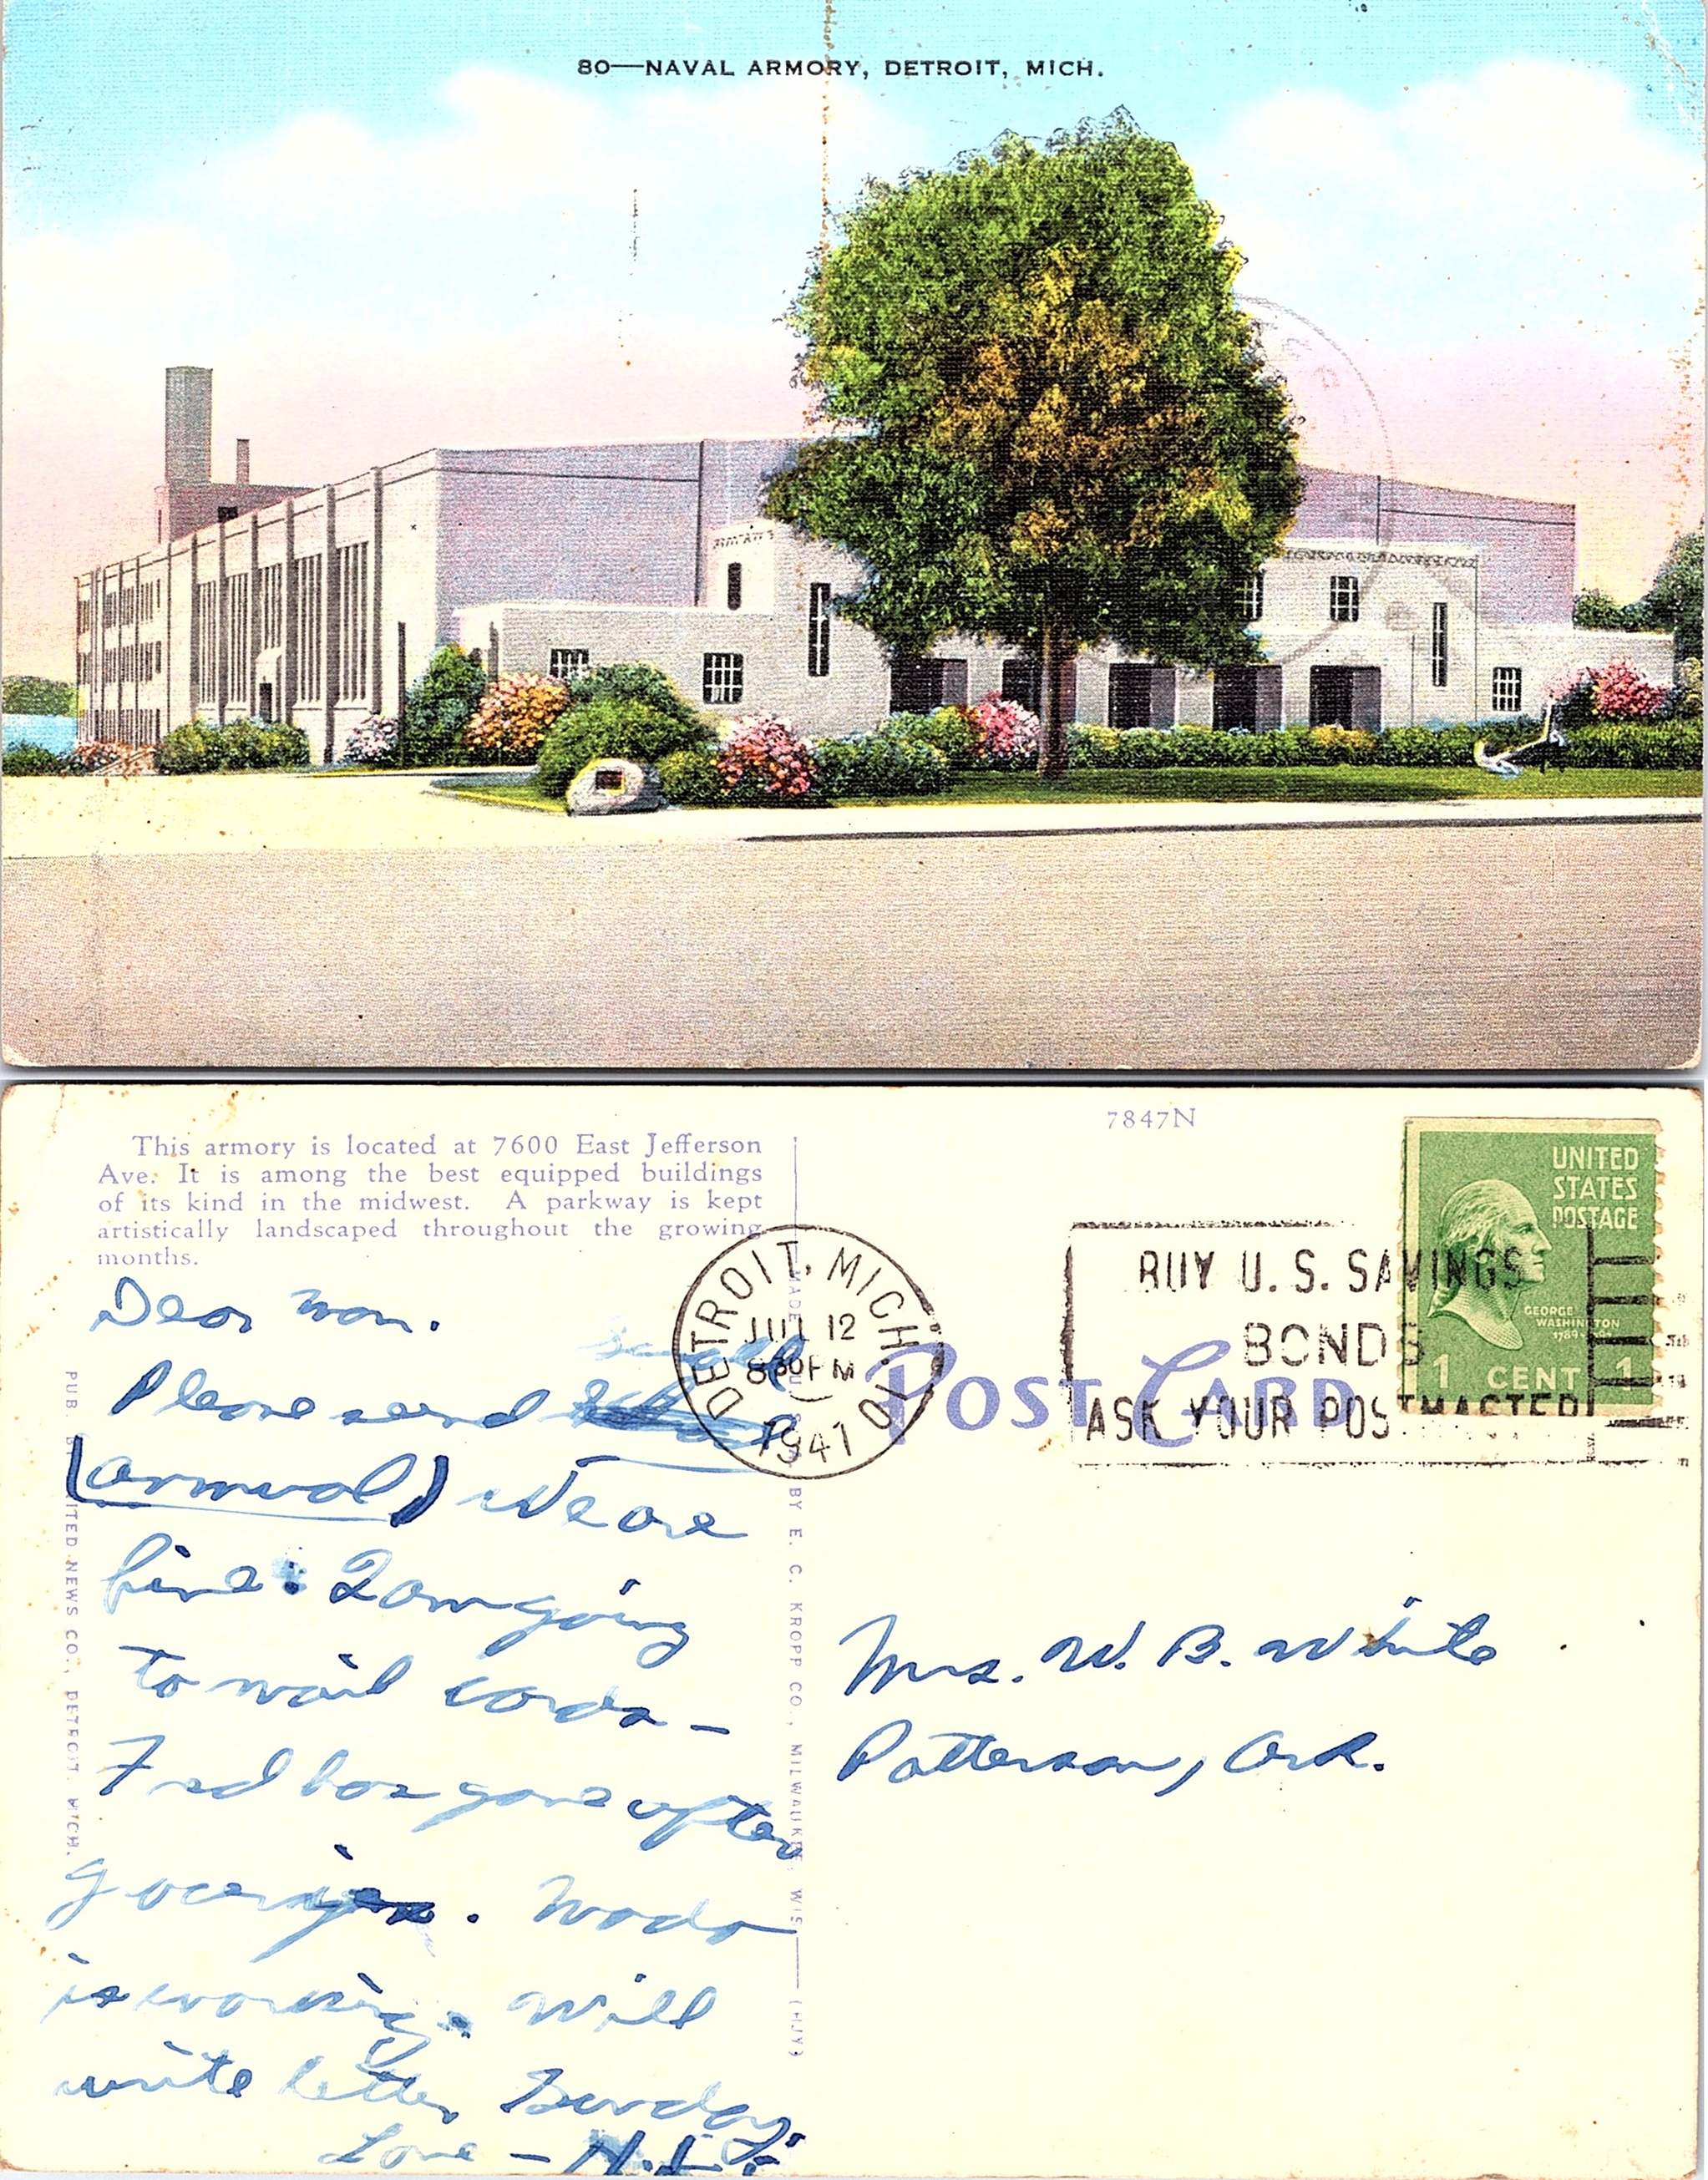 80—NAVAL ARMORY, DETROIT, MICH.
7847N
This armory is located at 7600 East Jefferson
Ave. It is among the best equipped buildings
of its kind in the midwest. A parkway is kept
artistically landscaped throughout the growing
months.
UNITED
STATES
POSTAGE
GEORGE
WASHINGTON
1789
1 CENT 1
DETROIT, MICH.
JUL 12
8 30 PM
1941
BUY U.S. SAVINGS
BONDS
ASK YOUR POSTMASTER
POST CARD
Dear Mom.
Please send
(annual) We are
fine. I am going
to mail cards –
Fred has gone after
groceries. Wada
is working. Will
write letter Sunday.
Love – H.L.
Mrs. W. B. White
Patterson, Ark.
PUB. BY UNITED NEWS CO., DETROIT, MICH.
MADE BY E. C. KROPP CO., MILWAUKEE, WIS.